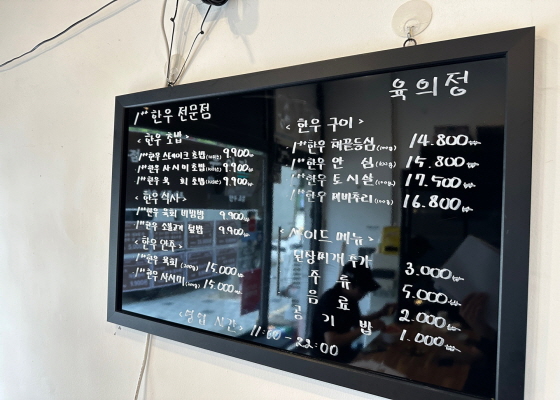 육의정
1++한우 전문점
<한우 초밥>
1++한우 스테이크 초밥(10피스) 9.900원
1++한우 사시미 초밥(10피스) 9.900원
1++한우 육 회 초밥(10피스) 9.900원
<한우 식사>
1++한우 육회 비빔밥 9.900원
1++한우 소불고기 덮밥 9.900원
<한우 안주>
1++한우 육회(200g) 15.000원
1++한우 사시미(200g) 15.000원
<한우 구이>
1++한우 채끝등심(100g) 14.800원
1++한우 안 심(100g) 15.800원
1++한우 토시살(100g) 17.500원
1++한우 제비추리(100g) 16.800원
<사이드 메뉴>
된장찌개 추가 3.000원
주 류 5.000원
음 료 2.000원
공 기 밥 1.000원
<영업 시간> 11:00 - 22:00